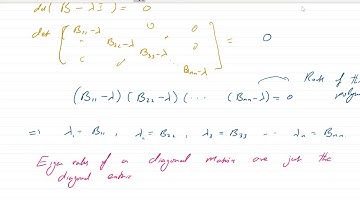 det(B - λI) = 0
det [ B₁₁-λ 0 0 B₂₂-λ B₃₃-λ Bₙₙ-λ ] = 0
(B₁₁-λ) (B₂₂-λ) (··· (Bₙₙ-λ) = 0 Roots of the
⇒ λ₁ = B₁₁, λ₂ = B₂₂, λ₃ = B₃₃ ··· λₙ = Bₙₙ
Eigen values of a diagonal matrix are just the
diagonal entries